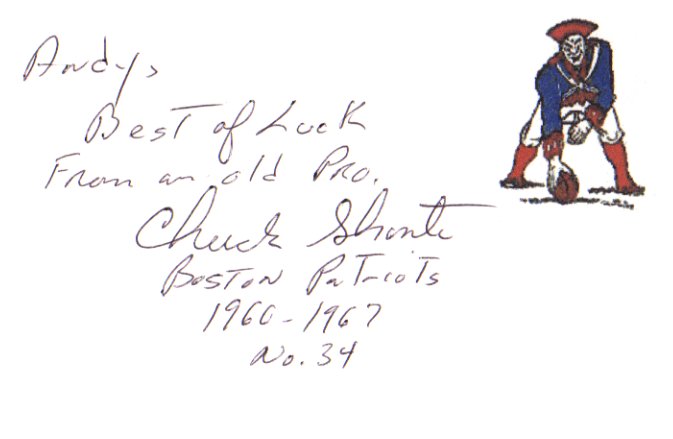 Andy,
Best of Luck
From an old Pro.
Chuck Shonta
Boston Patriots
1960-1967
No. 34